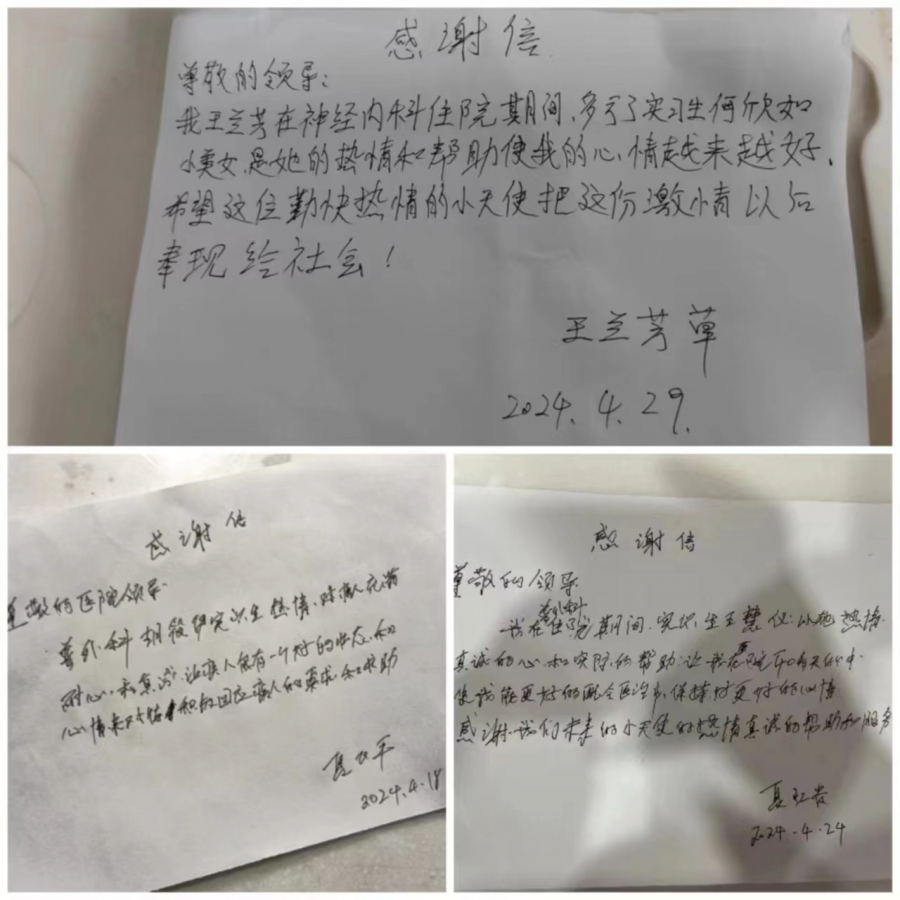 感谢信
尊敬的领导:
我王兰芳在神经内科住院期间,多亏了实习生何欣如
小美女,是她的热情和帮助使我的心情越来越好.
希望这位勤快热情的小天使把这份激情以后
奉现给社会!
王兰芳草
2024.4.29.
感谢信
尊敬的医院领导:
普外科胡 实习生热情、对病人充满
耐心,和真诚,让病人能有一个好的状态,和
心情来 积极回应病人的要求,和帮助
2024.4.18
感谢信
尊敬的领导:
普外科
我在住院期间,实地生王慧仪:以她热情.
真诚的心,和实际的帮助;让我在
使我能更好的配合医治,保持好更好的心情
感谢我们未来的小天使的热情真诚的帮助和服务
夏红贵
2024.4.24